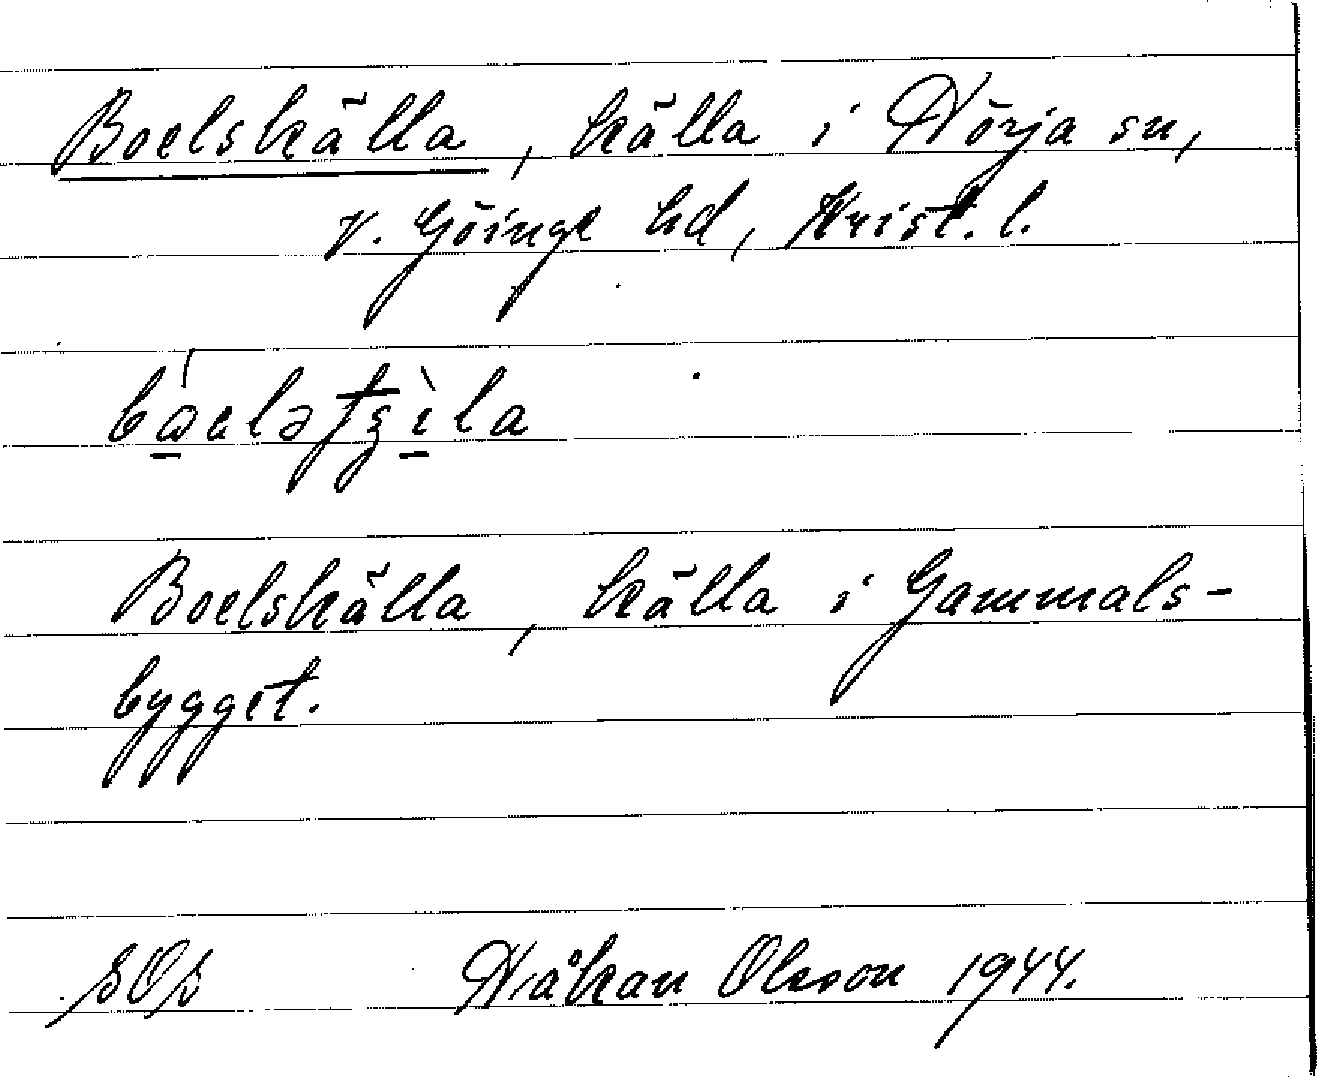 Boelskälla, källa i Nörja sn,
V. Göinge hd, Krist. l.
Boelskälla, källa i Gammals-
bygget.
SOS Håkan Olsson 1944.